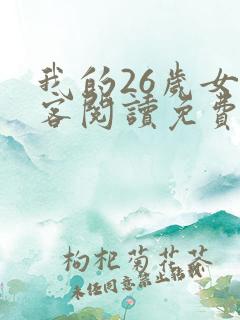 我的26歲女
客閱讀免費
枸杞菊花茶
未经同意禁止转研